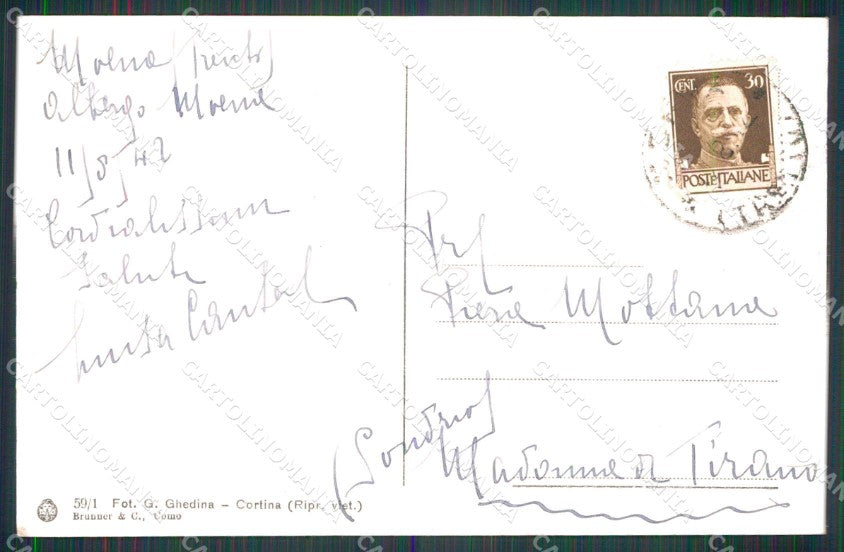 Moena (Trento)
Albergo Moena
11/8/42
Cordialissimi
saluti
CENT. 30
POSTE ITALIANE
Prof
Mottana
(Sondrio)
Madonna di Tirano
59/1 Fot. G. Ghedina – Cortina (Ripr. viet.)
Brunner & C., Como
CARTOLINOMANIA